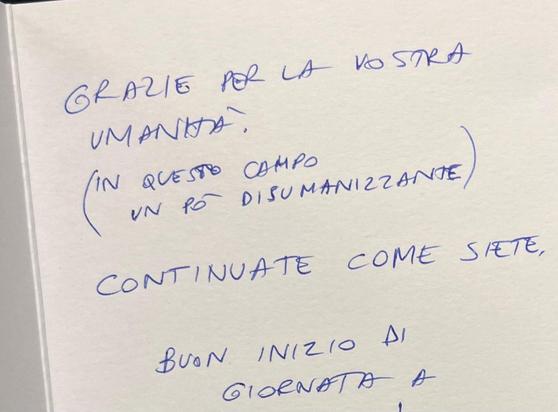 GRAZIE PER LA VOSTRA
UMANITÀ.
(IN QUESTO CAMPO
UN PÒ DISUMANIZZANTE)
CONTINUATE COME SIETE,
BUON INIZIO DI
GIORNATA A